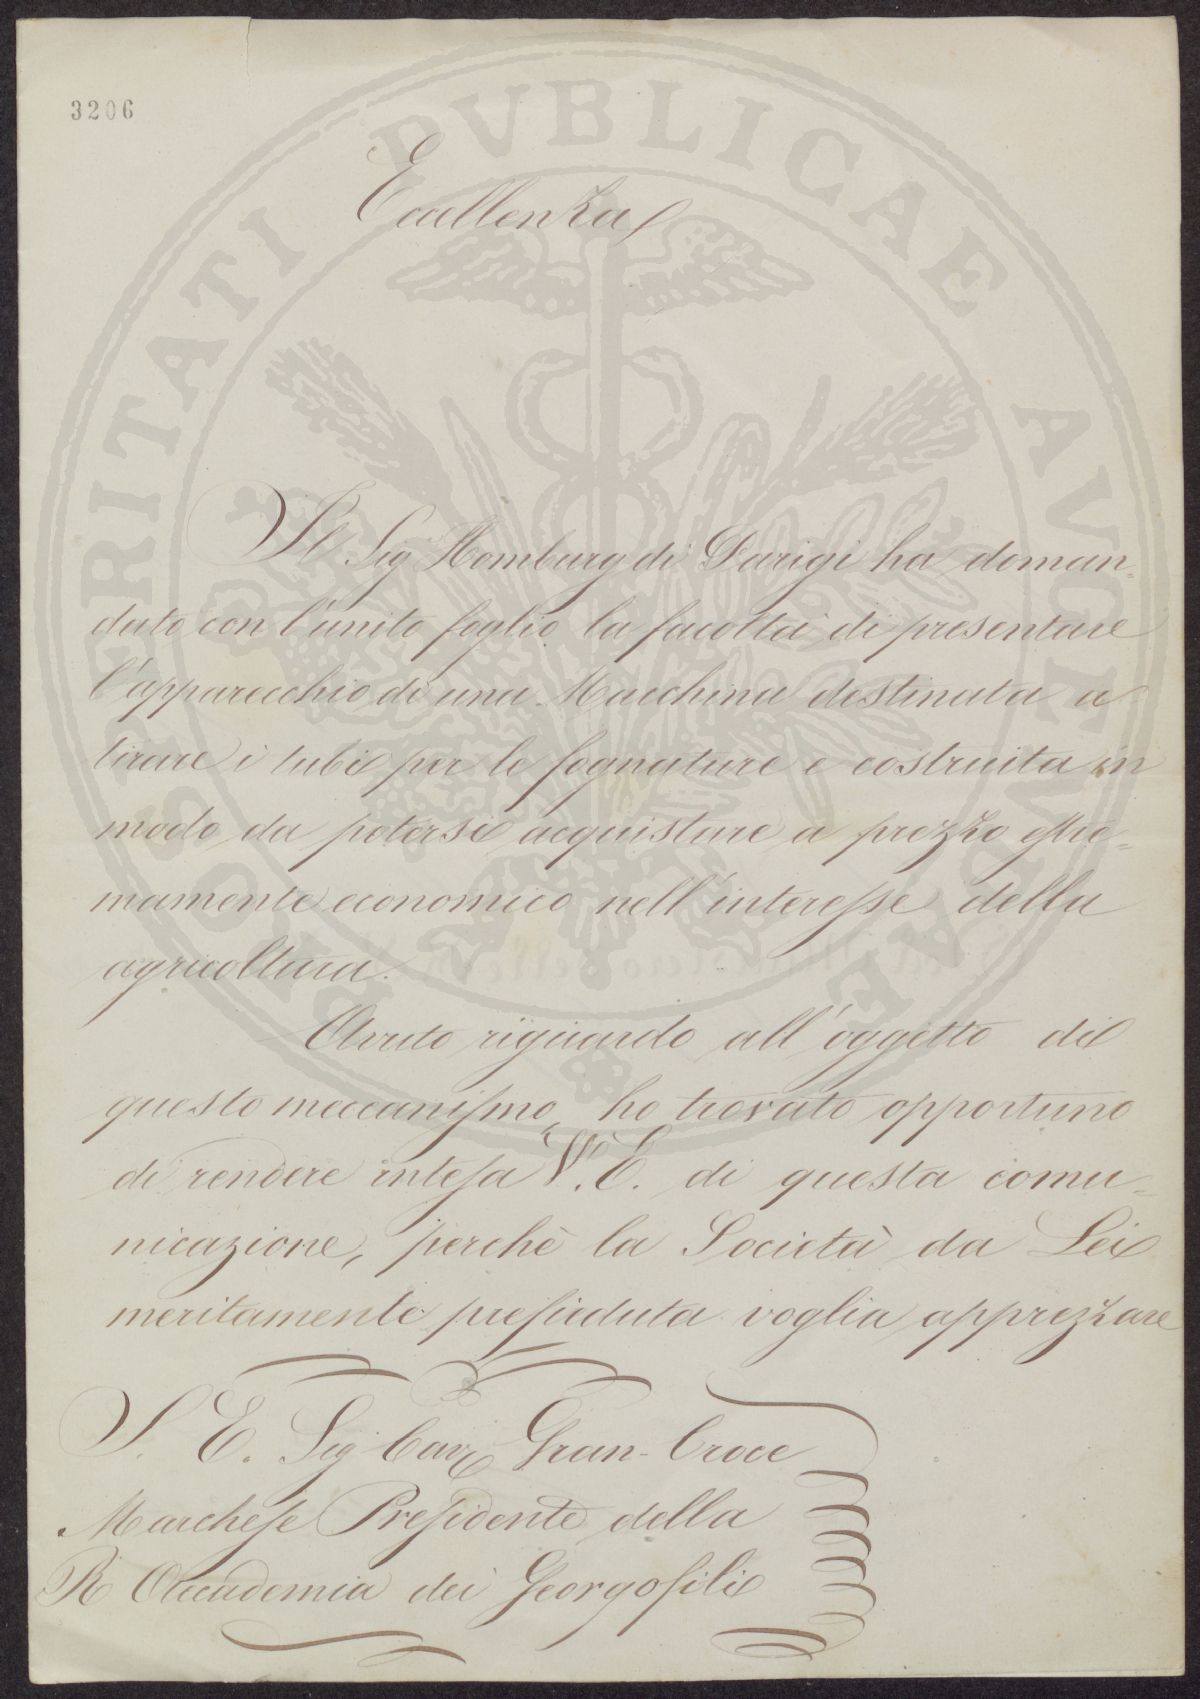 3206
PROSPERITATI PVBLICAE AVGEVDAE
Eccellenza
Il Sig Homburg di Parigi ha doman=
dato con l'unito foglio la facoltà di presentare
l'apparecchio di una Macchina destinata a
tirare i tubi per le fognature e costruita in
modo da potersi acquistare a prezzo
mamente economico nell'interesse della
agricoltura.
Avuto riguardo all'oggetto di
questo meccanismo, ho trovato opportuno
di rendere intesa V. E. di questa comu=
nicazione, perchè la Società da Lei
meritamente presieduta voglia apprezzare
S. E. Sig Cav Gran-Croce
Marchese Presidente della
R Accademia dei Georgofili